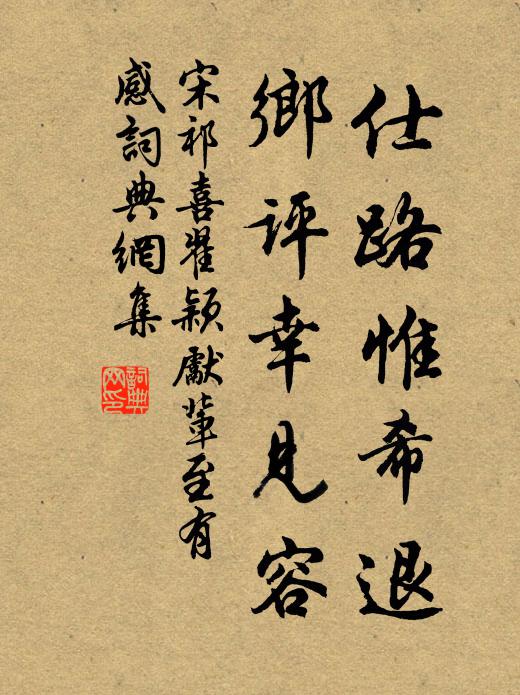 仕路惟希退
鄉評幸見容
宋祁喜瞿颖獻輩至有
感詞典網集
詞典
网印